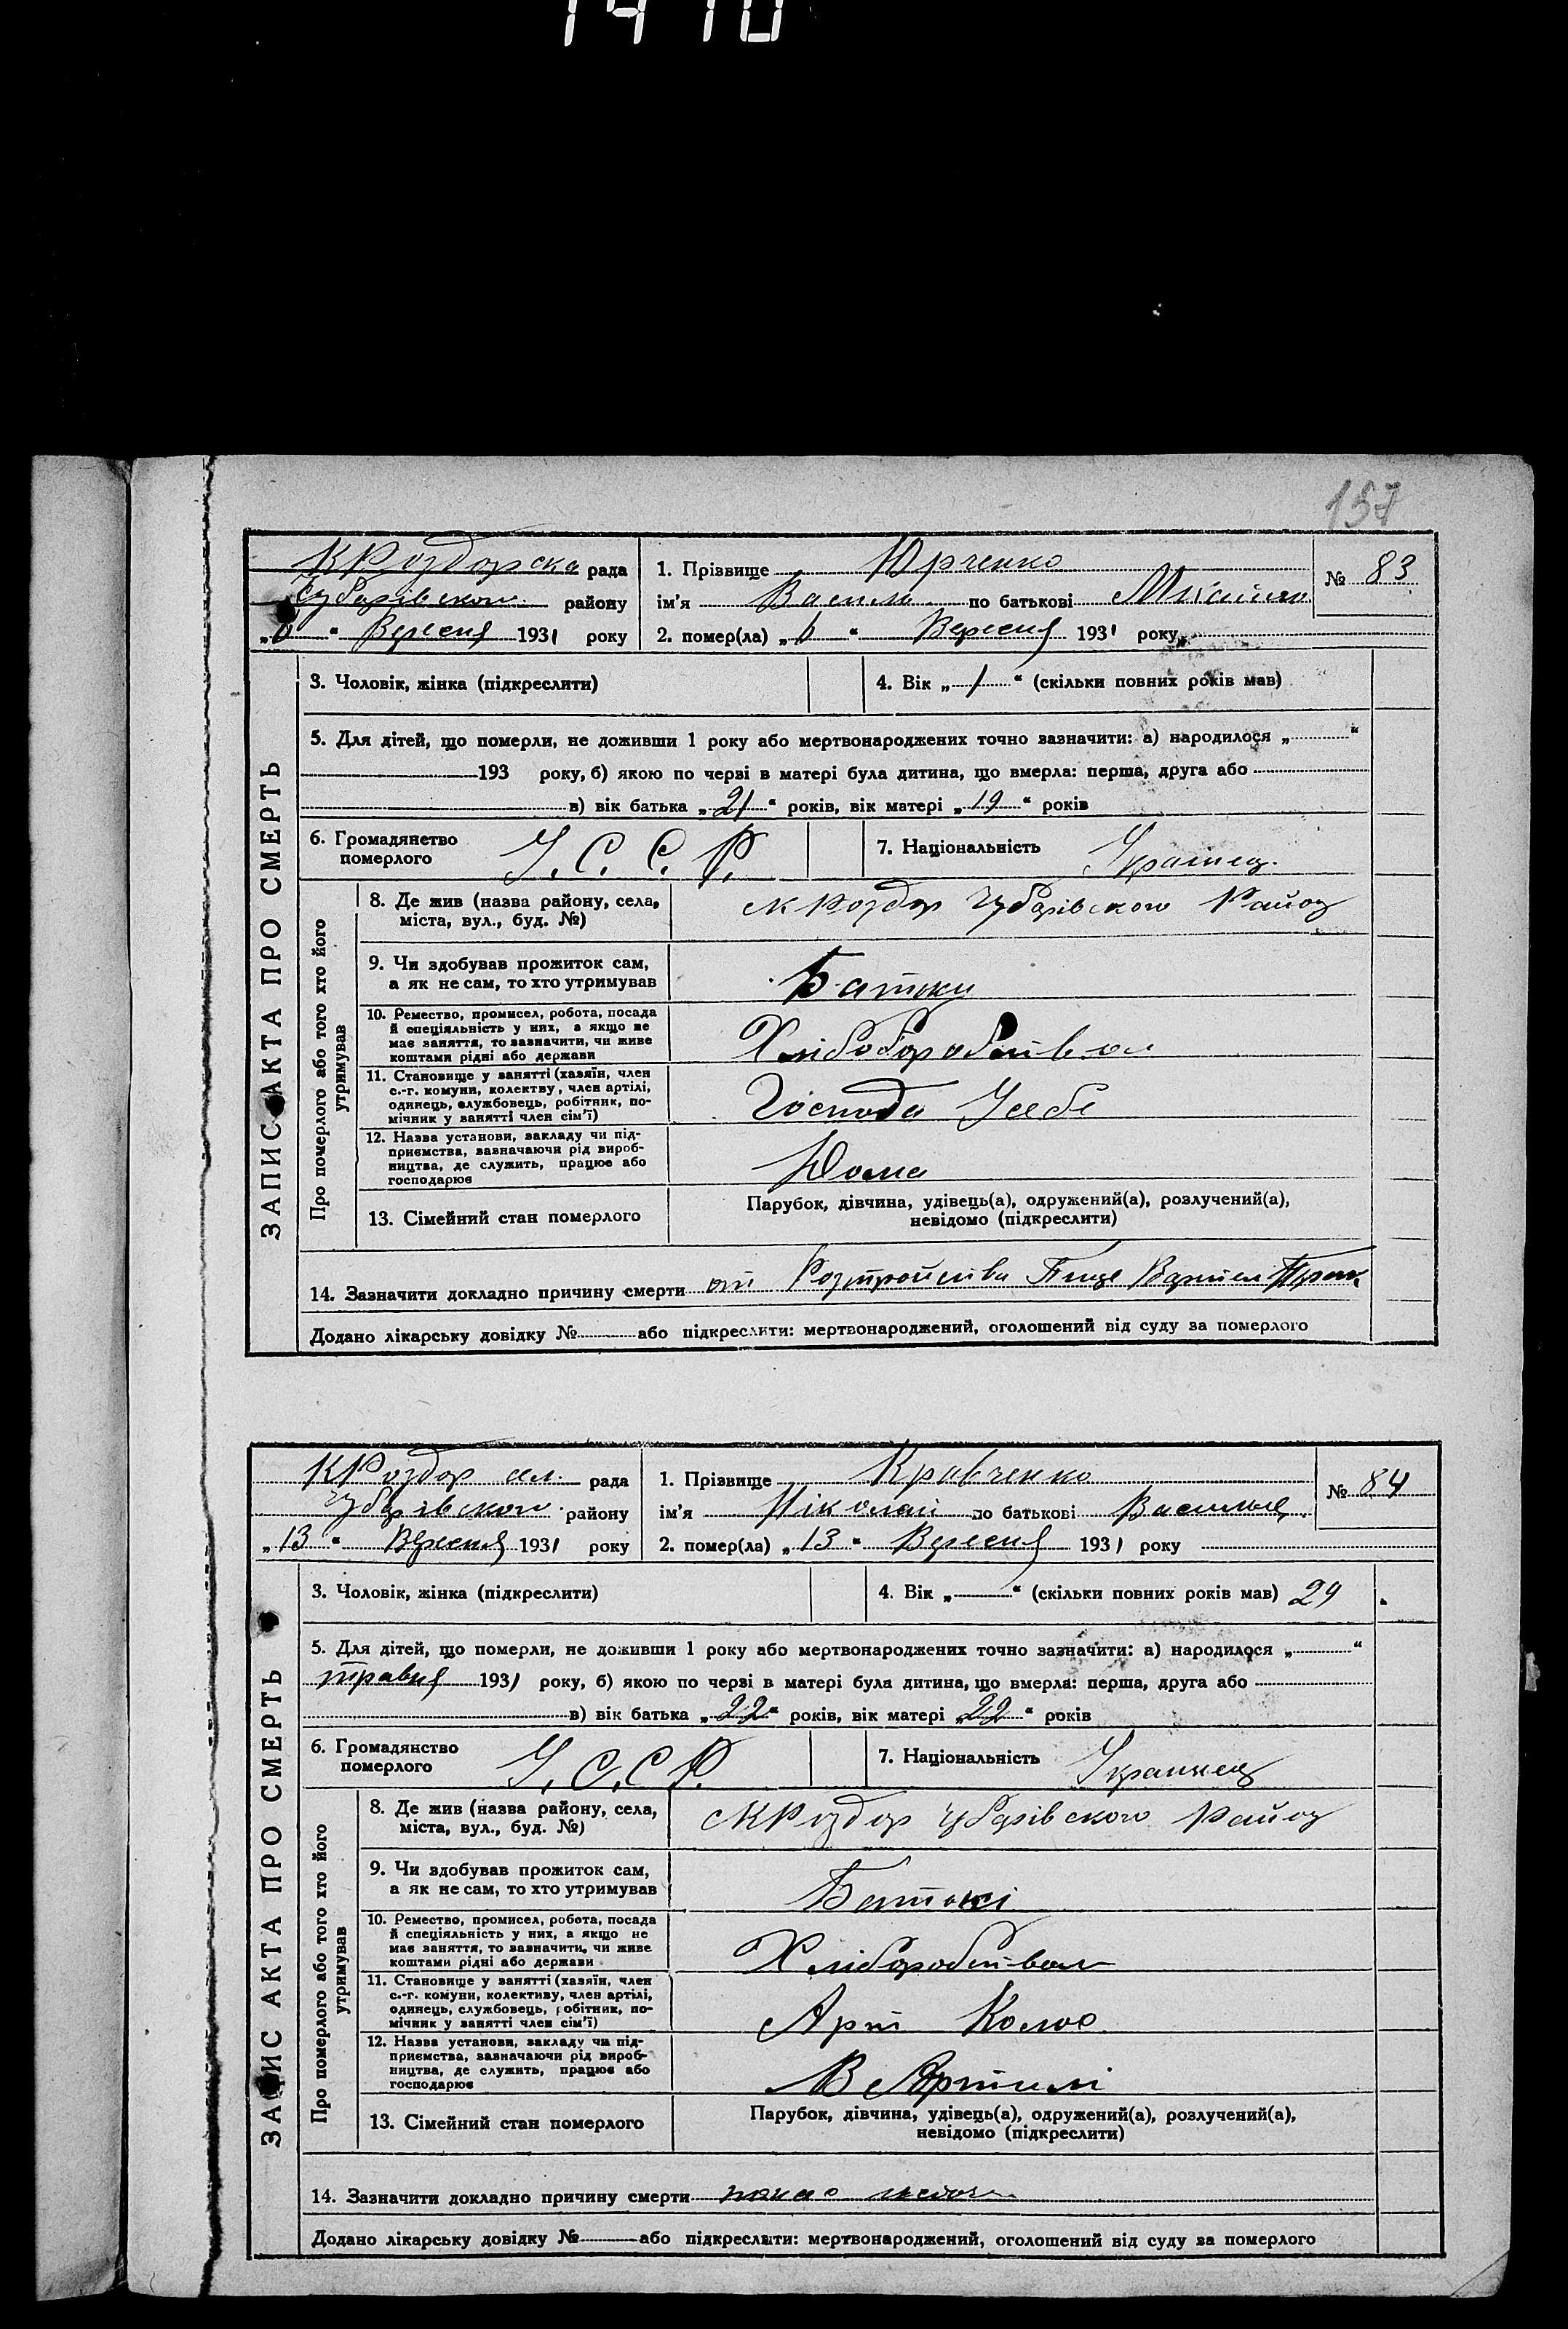 1410
157
К Роздорска рада
Чубарівського району
„6“ Вересня 1931 року
1. Прізвище Юрченко
№ 83
ім'я Васил по батькові
2. помер(ла) „6“ Вересня 1931 року
ЗАПИС АКТА ПРО СМЕРТЬ
3. Чоловік, жінка (підкреслити)
4. Вік „1“ (скільки повних років мав)
5. Для дітей, що померли, не доживши 1 року або мертвонароджених точно зазначити: а) народилося „ “
193 року, б) якою по черзі в матері була дитина, що вмерла: перша, друга або
в) вік батька „21“ років, вік матері „19“ років
6. Громадянство
померлого
У. С. С. Р.
7. Національність Украінец
Про померлого або того хто його
утримував
8. Де жив (назва району, села,
міста, вул., буд. №)
с К Роздор Чубарівского Району
9. Чи здобував прожиток сам,
а як не сам, то хто утримував
Батьки
10. Ремество, промисел, робота, посада
й спеціяльність у них, а якщо не
має заняття, то зазначити, чи живе
коштами рідні або держави
Хлібобробством
11. Становище у занятті (хазяїн, член
с.-г. комуни, колективу, член артілі,
одинець, службовець, робітник, по-
мічник у занятті член сім'ї)
Господа Усебе
12. Назва установи, закладу чи під-
приємства, зазначаючи рід вироб-
ництва, де служить, працює або
господарює
Дома
13. Сімейний стан померлого
Парубок, дівчина, удівець(а), одружений(а), розлучений(а),
невідомо (підкреслити)
14. Зазначити докладно причину смерти от Розтройства
Додано лікарську довідку № або підкреслити: мертвонароджений, оголошений від суду за померлого
К Роздор рада
Чубарівского району
„13“ Вересня 1931 року
1. Прізвище Кравченко
№ 84
ім'я Ніколай по батькові Васильов
2. помер(ла) „13“ Вересня 1931 року
ЗАПИС АКТА ПРО СМЕРТЬ
3. Чоловік, жінка (підкреслити)
4. Вік „ “ (скільки повних років мав) 29
5. Для дітей, що померли, не доживши 1 року або мертвонароджених точно зазначити: а) народилося „ “
травня 1931 року, б) якою по черзі в матері була дитина, що вмерла: перша, друга або
в) вік батька „22“ років, вік матері „22“ років
6. Громадянство
померлого
У. С. С. Р.
7. Національність Украинец
Про померлого або того хто його
утримував
8. Де жив (назва району, села,
міста, вул., буд. №)
с К Роздор Чубарівского Району
9. Чи здобував прожиток сам,
а як не сам, то хто утримував
Батькі
10. Ремество, промисел, робота, посада
й спеціяльність у них, а якщо не
має заняття, то зазначити, чи живе
коштами рідні або держави
Хліборобством
11. Становище у занятті (хазяїн, член
с.-г. комуни, колективу, член артілі,
одинець, службовець, робітник, по-
мічник у занятті член сім'ї)
Арт
12. Назва установи, закладу чи під-
приємства, зазначаючи рід вироб-
ництва, де служить, працює або
господарює
В Артилі
13. Сімейний стан померлого
Парубок, дівчина, удівець(а), одружений(а), розлучений(а),
невідомо (підкреслити)
14. Зазначити докладно причину смерти
Додано лікарську довідку № або підкреслити: мертвонароджений, оголошений від суду за померлого